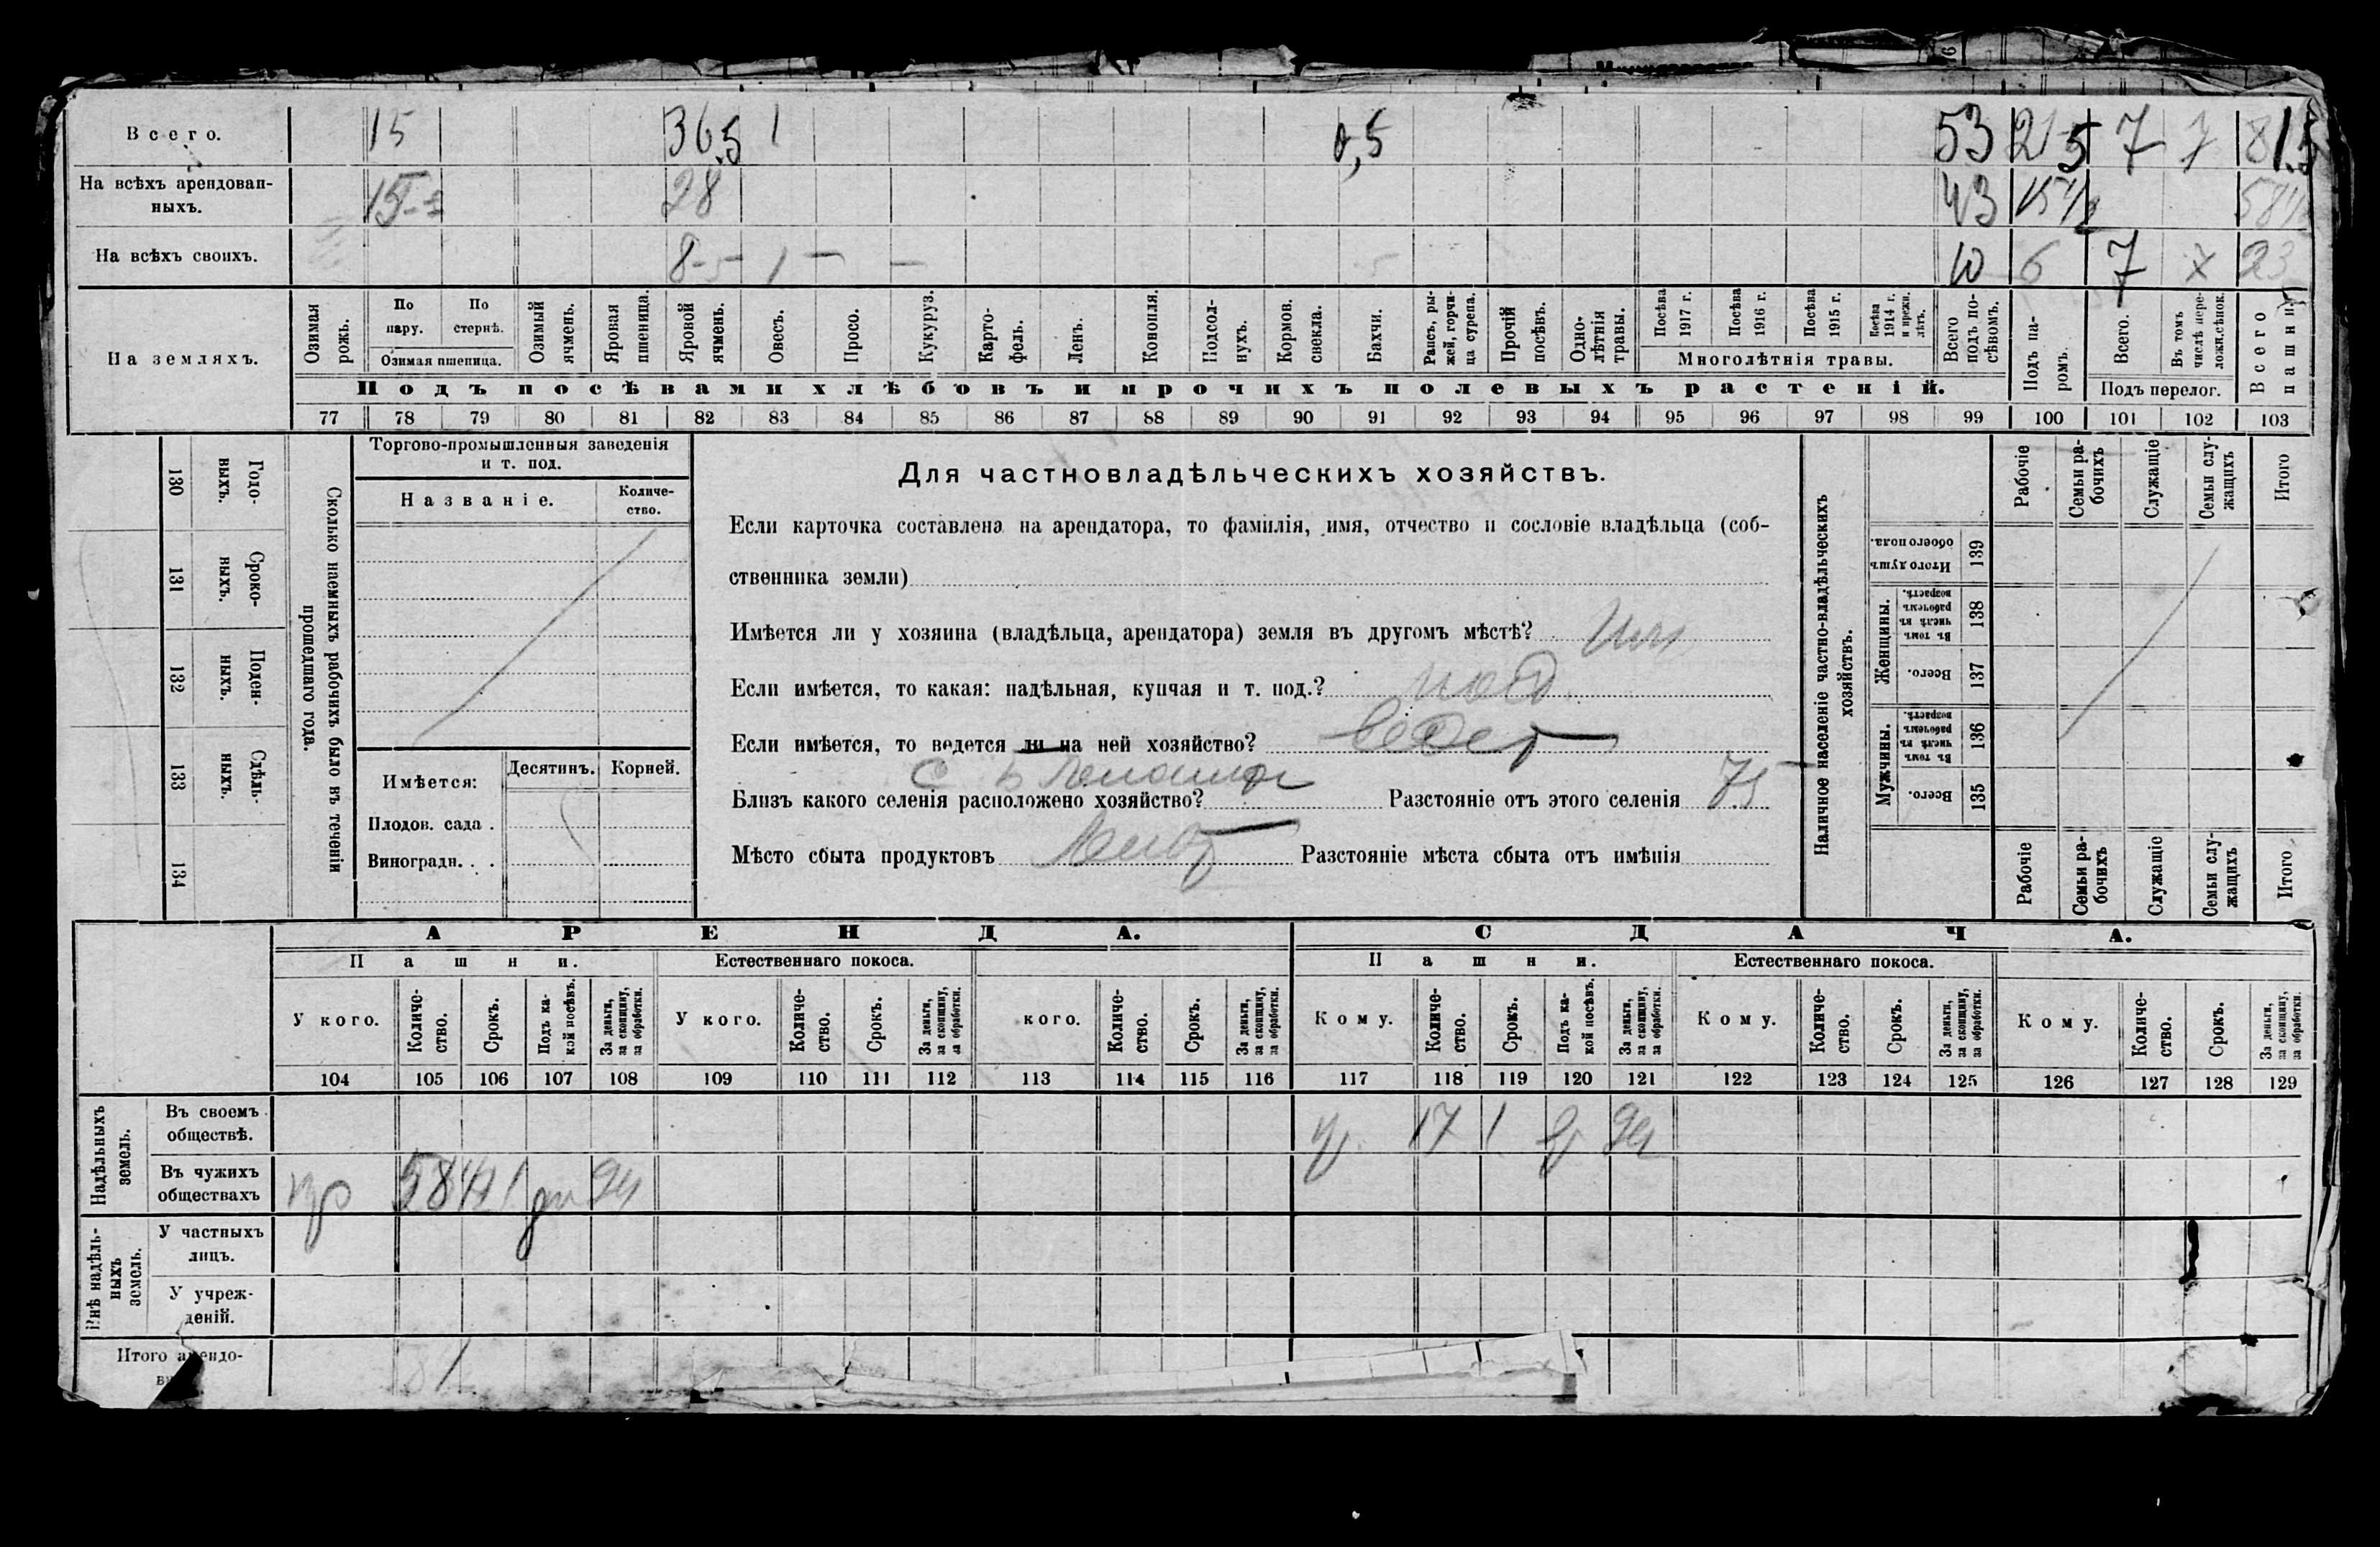 Всего. 15 36,5 1 0,5 53 21,5 7 7 81,5
На всѣхъ арендован-
ныхъ. 15 28 43 15 1/2 58 1/2
На всѣхъ своихъ. 8 1 10 6 7 7 23
На земляхъ.
Озимая рожь.
По пару.
По стернѣ.
Озимая пшеница.
Озимый ячмень.
Яровая пшеница.
Яровой ячмень.
Овесъ.
Просо.
Кукуруз.
Карто-
фель.
Ленъ.
Конопля.
Подсол-
нухъ.
Кормов.
свекла.
Бахчи.
Рапсъ, ры-
жей, горчи-
ца сурепа.
Прочій
посѣвъ.
Одно-
лѣтнія
травы.
Посѣва
1917 г.
Посѣва
1916 г.
Посѣва
1915 г.
Посѣва
1914 г.
и прежн.
лѣтъ.
Многолѣтнія травы.
Всего
подъ по-
сѣвомъ.
Подъ па-
ромъ.
Всего.
Въ томъ
числѣ пере-
ложн.сѣнок.
Подъ перелог.
Всего
пашни.
Подъ посѣвами хлѣбовъ и прочихъ полевыхъ растеній.
77 78 79 80 81 82 83 84 85 86 87 88 89 90 91 92 93 94 95 96 97 98 99 100 101 102 103
130 Годо-
выхъ.
131 Сроко-
ныхъ.
132 Поден-
ныхъ.
133 Сдѣль-
ныхъ.
134
Сколько наемныхъ рабочихъ было въ теченіи
прошедшаго года.
Торгово-промышленныя заведенія
и т. под.
Названіе.
Количе-
ство.
Имѣется:
Десятинъ. Корней.
Плодов. сада .
Виноградн. . .
Для частновладѣльческихъ хозяйствъ.
Если карточка составлена на арендатора, то фамилія, имя, отчество и сословіе владѣльца (соб-
ственника земли)
Имѣется ли у хозяина (владѣльца, арендатора) земля въ другомъ мѣстѣ?
Если имѣется, то какая: надѣльная, купчая и т. под.?
Если имѣется, то ведется ли на ней хозяйство? ведет
Близъ какого селенія расположено хозяйство? Разстояніе отъ этого селенія 75
Мѣсто сбыта продуктовъ Разстояніе мѣста сбыта отъ имѣнія
Наличное населеніе частно-владѣльческихъ
хозяйствъ.
Рабочіе
Семьи ра-
бочихъ
Служащіе
Семьи слу-
жащихъ
Итого
Итого душъ
обоего пола. 139
Женщины.
Въ томъ
числѣ въ
рабочемъ
возрастѣ. 138
Всего. 137
Мужчины.
Въ томъ
числѣ въ
рабочемъ
возрастѣ. 136
Всего. 135
Рабочіе
Семьи ра-
бочихъ
Служащіе
Семьи слу-
жащихъ
Итого
АРЕНДА. СДАЧА.
Пашни. Естественнаго покоса. Пашни. Естественнаго покоса.
У кого.
Количе-
ство.
Срокъ.
Подъ ка-
кой посѣвъ.
За деньги,
за скопщину,
за обработки.
У кого.
Количе-
ство.
Срокъ.
За деньги,
за скопщину,
за обработки.
кого.
Количе-
ство.
Срокъ.
За деньги,
за скопщину,
за обработки.
Кому.
Количе-
ство.
Срокъ.
Подъ ка-
кой посѣвъ.
За деньги,
за скопщину,
за обработки.
Кому.
Количе-
ство.
Срокъ.
За деньги,
за скопщину,
за обработки.
Кому.
Количе-
ство.
Срокъ.
За деньги,
за скопщину,
за обработки.
104 105 106 107 108 109 110 111 112 113 114 115 116 117 118 119 120 121 122 123 124 125 126 127 128 129
Надѣльныхъ
земель.
Въ своемъ
обществѣ. 17 1
Въ чужихъ
обществахъ 58 1/2 1
Внѣ надѣль-
ныхъ
земель.
У частныхъ
лицъ.
У учреж-
деній.
Итого арендо-